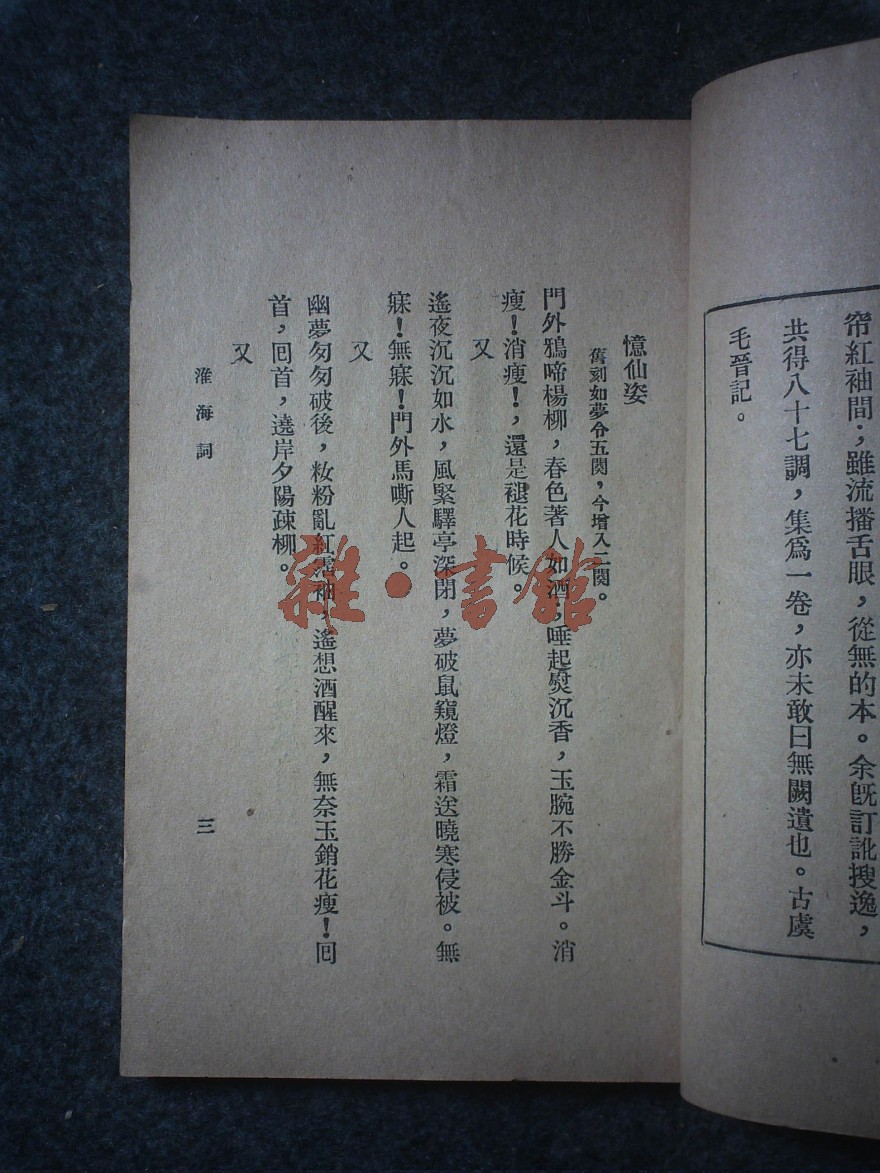 帘紅袖間；雖流播舌眼，從無的本。余旣訂訛搜逸，
共得八十七調，集爲一卷，亦未敢曰無闕遺也。古虞
毛晉記。
憶仙姿
舊刻如夢令五闋，今增入二闋。
門外鴉啼楊柳，春色著人如酒；睡起熨沉香，玉腕不勝金斗。消
瘦！消瘦！，還是褪花時候。
又
遙夜沉沉如水，風緊驛亭深閉，夢破鼠窺燈，霜送曉寒侵被。無
寐！無寐！門外馬嘶人起。
又
幽夢匆匆破後，妝粉亂紅霑袖，遙想酒醒來，無奈玉銷花瘦！囘
首，囘首，遶岸夕陽疎柳。
又
淮海詞
三
雜·書館